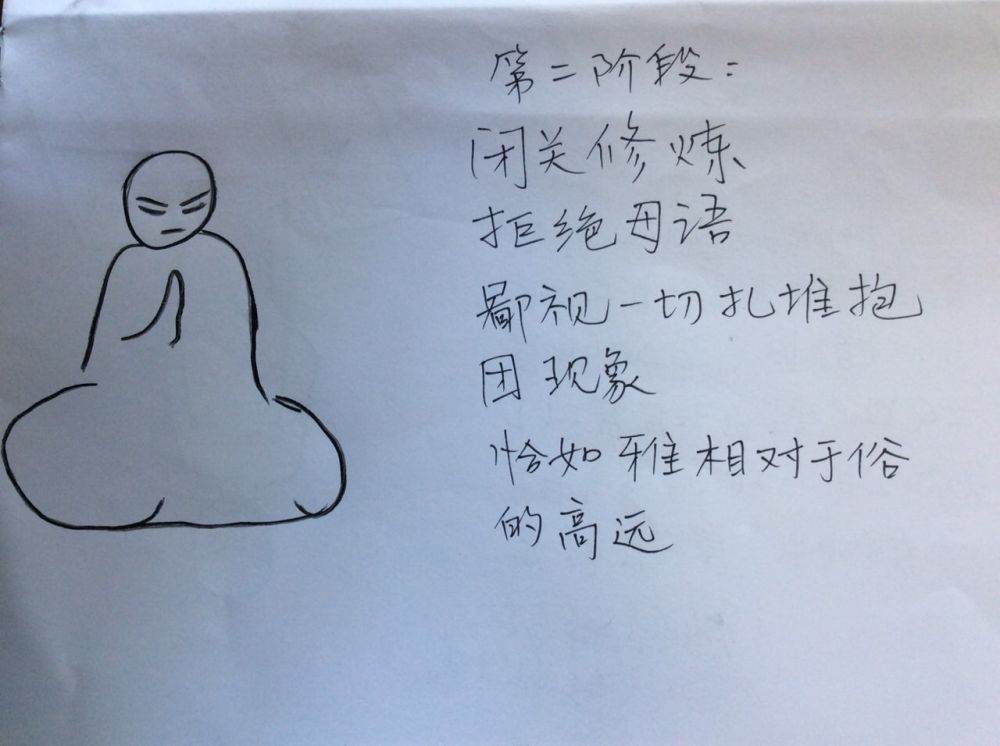 第二阶段：
闭关修炼
拒绝母语
鄙视一切扎堆抱
团现象
恰如雅相对于俗
的高远